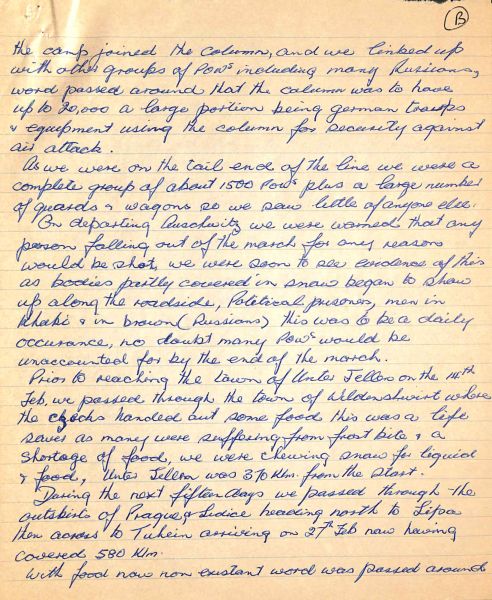 B
the camp joined the column, and we linked up
with other groups of POWs including many Russians,
word passed around that the column was to have
up to 20,000 a large portion being german troops
& equipment using the column for security against
air attack.
As we were on the tail end of the line we were a
complete group of about 1500 POWs plus a large number
of guards & wagons so we saw little of anyone else.
On departing Auschwitz we were warned that any
person falling out of the march for any reason
would be shot, we were soon to see evidence of this
as bodies partly covered in snow began to show
up along the roadside, Political prisoners, men in
khaki & in brown (Russians) this was to be a daily
occurance, no doubt many POWs would be
unaccounted for by the end of the march.
Prior to reaching the town of Unter Jellen on the 14th
Feb, we passed through the town of Wildenshwirt where
the Czechs handed out some food this was a life
saver as many were suffering from frost bite & a
shortage of food, we were chewing snow for liquid
& food, Unter Jellen was 370 Klm. from the start.
During the next fifteen days we passed through the
outskirts of Prague & Lidice heading north to Lipa
then across to Tuhein arriving on 27th Feb now having
covered 580 Klm.
With food now non existant word was passed around